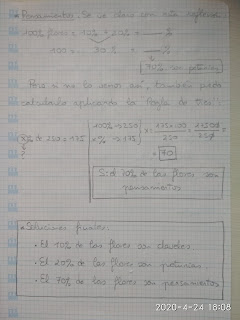 * Pensamientos: Se ve claro con esta reflexión:
100% flores = 10% + 20% + ___ %
100 = 30% + ___ %
70% son petunias
Pero si no lo vemos así, también puedo
calcularlo aplicando la Regla de Tres:
x% de 250 = 175
?
100% → 250
x% → 175
x = 175·100 / 250 = 17500 / 250 =
= 70
Sol: El 70% de las flores son
pensamientos
* Soluciones finales:
• El 10% de las flores son claveles
• El 20% de las flores son petunias
• El 70% de las flores son pensamientos
2020-4-24 18:08